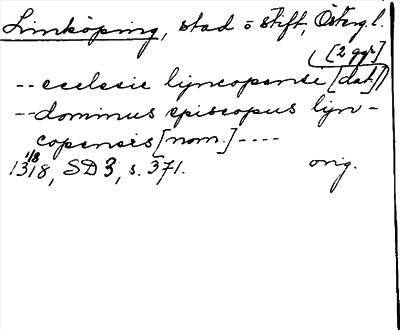 Linköping, stad o stift, Österg. l.
[2 ggr]
-- ecclesie lyncopense [dat.]
-- dominus episcopus lyn-
copensis [nom.] ----
1/8
1318, SD 3, s. 371. orig.